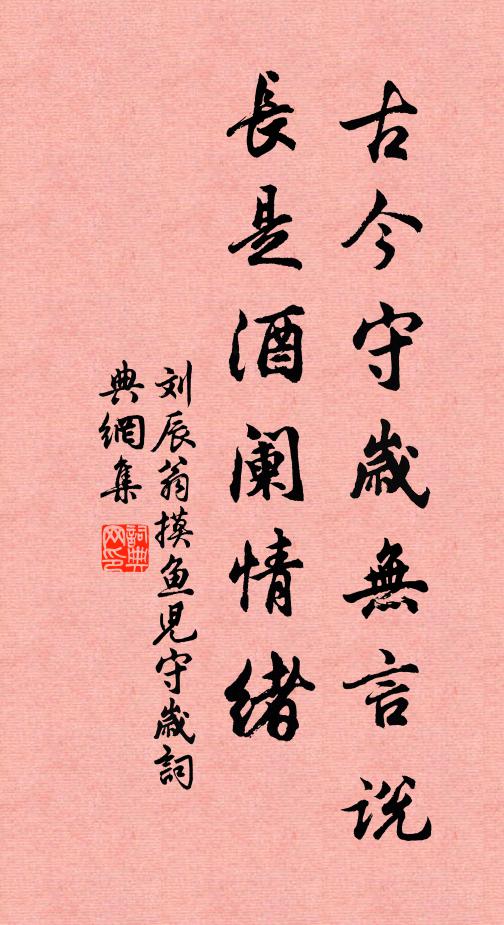 古今守歲無言說
長是酒闌情緒
刘辰翁摸鱼兒守歲詞
典網集
詞典網印